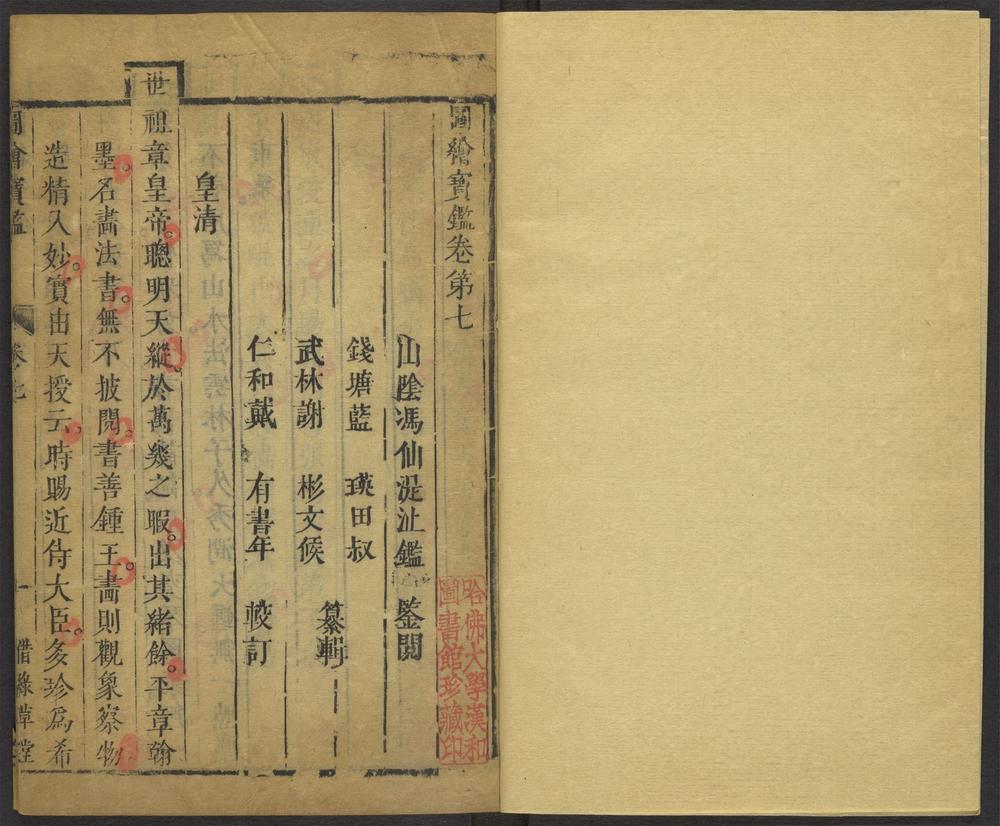 圖繪寶鑑卷第七
山陰馮仙湜沚鑑 鑒閱
錢塘藍 瑛田叔
武林謝 彬文侯
纂輯
仁和戴 有書年 較訂
皇清
世祖章皇帝聰明天縱於萬幾之暇出其緒餘平章翰
墨名畵法書無不披閱書善鍾王畵則觀象察物
造精入妙實由天授云時賜近侍大臣多珍爲希
圖繪寶鑑 卷七 一 借綠草堂
哈佛大學漢和
圖書館珍藏印